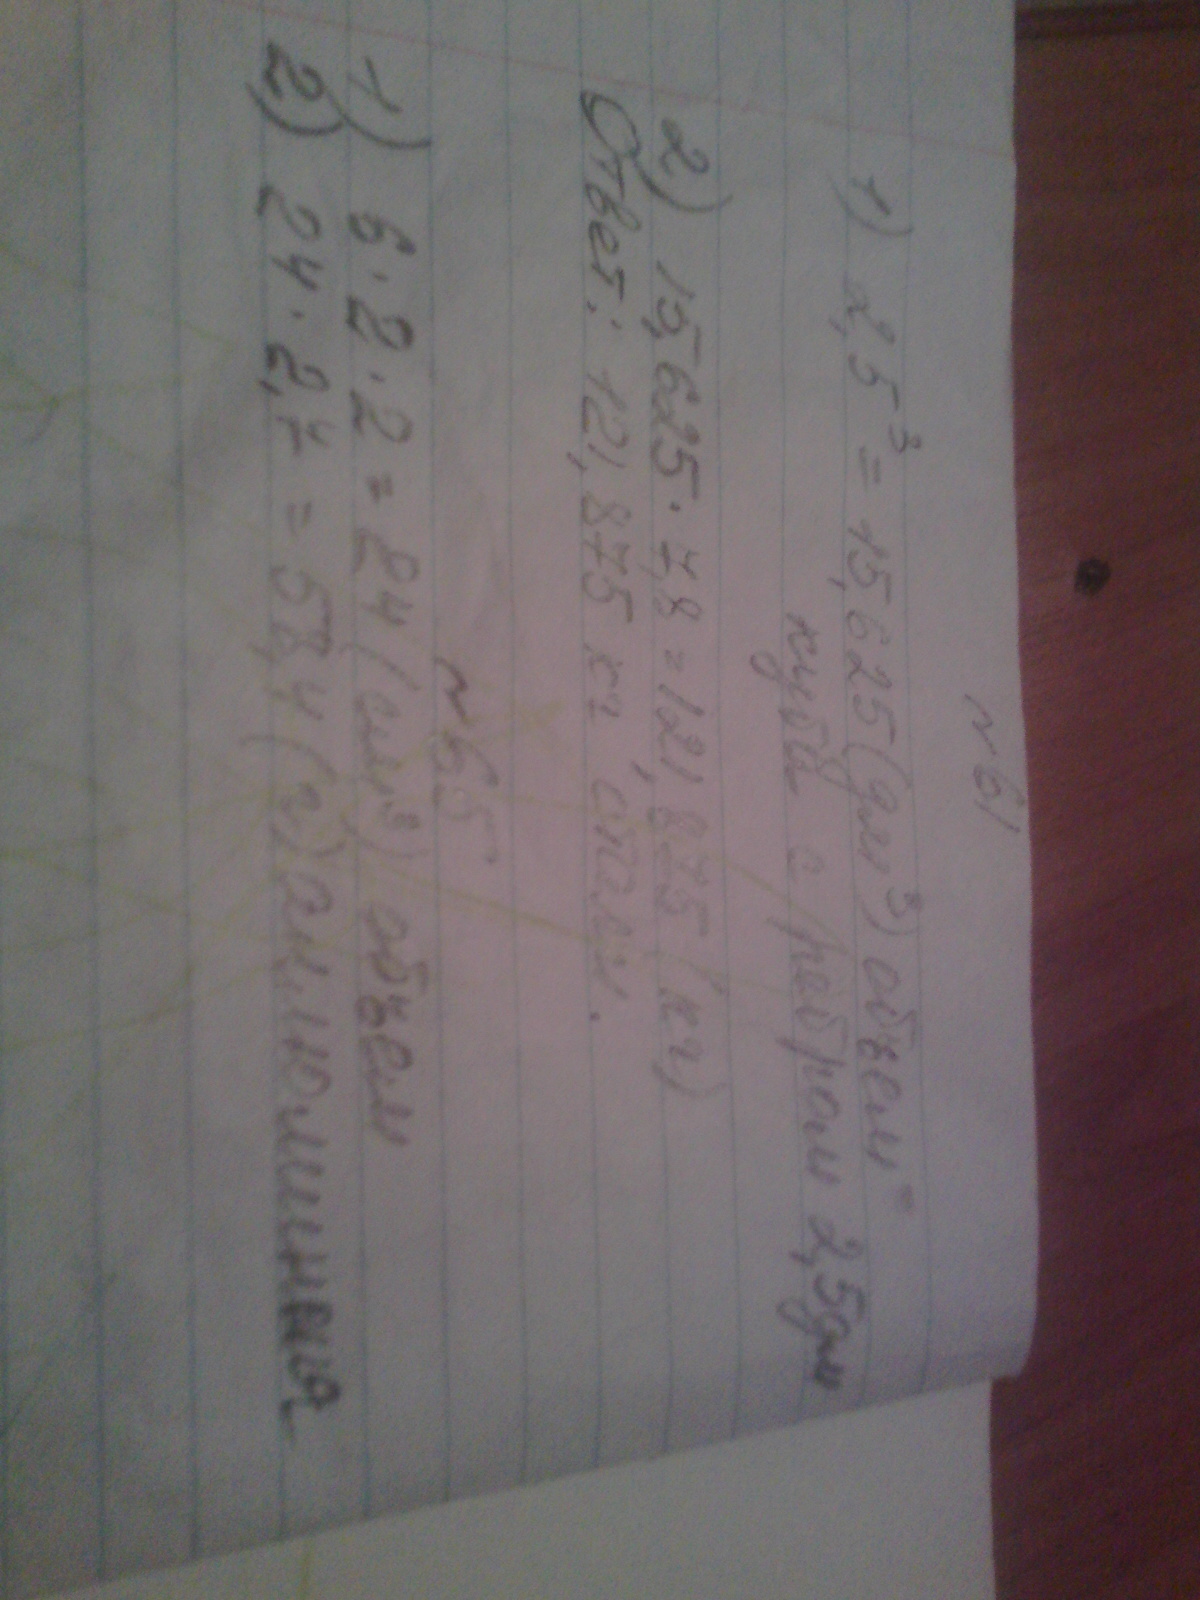 №61
1) 2,5³ = 15,625 (дм³) объем
куба с ребром 2,5дм
2) 15,625 · 7,8 = 121,875 (кг)
Ответ: 121,875 кг стали.
№65
1) 6 · 2 · 2 = 24 (см³) объем
2) 24 · 2,7 = 58,4 (г) аллюминия